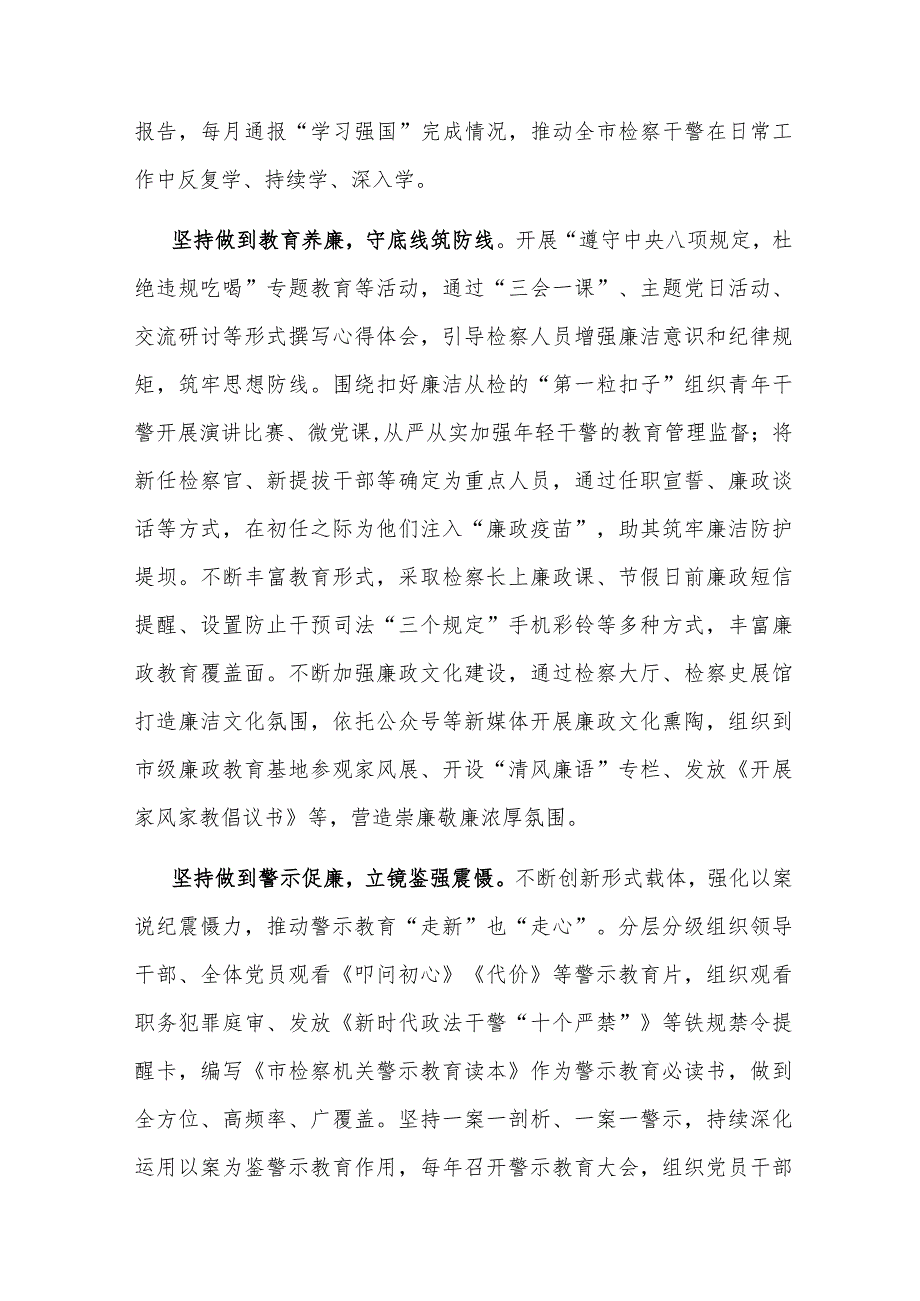 报告，每月通报“学习强国”完成情况，推动全市检察干警在日常工
作中反复学、持续学、深入学。
坚持做到教育养廉，守底线筑防线。开展“遵守中央八项规定，杜
绝违规吃喝”专题教育等活动，通过“三会一课”、主题党日活动、
交流研讨等形式撰写心得体会，引导检察人员增强廉洁意识和纪律规
矩，筑牢思想防线。围绕扣好廉洁从检的“第一粒扣子”组织青年干
警开展演讲比赛、微党课,从严从实加强年轻干警的教育管理监督；将
新任检察官、新提拔干部等确定为重点人员，通过任职宣誓、廉政谈
话等方式，在初任之际为他们注入“廉政疫苗”，助其筑牢廉洁防护
堤坝。不断丰富教育形式，采取检察长上廉政课、节假日前廉政短信
提醒、设置防止干预司法“三个规定”手机彩铃等多种方式，丰富廉
政教育覆盖面。不断加强廉政文化建设，通过检察大厅、检察史展馆
打造廉洁文化氛围，依托公众号等新媒体开展廉政文化熏陶，组织到
市级廉政教育基地参观家风展、开设“清风廉语”专栏、发放《开展
家风家教倡议书》等，营造崇廉敬廉浓厚氛围。
坚持做到警示促廉，立镜鉴强震慑。不断创新形式载体，强化以案
说纪震慑力，推动警示教育“走新”也“走心”。分层分级组织领导
干部、全体党员观看《叩问初心》《代价》等警示教育片，组织观看
职务犯罪庭审、发放《新时代政法干警“十个严禁”》等铁规禁令提
醒卡，编写《市检察机关警示教育读本》作为警示教育必读书，做到
全方位、高频率、广覆盖。坚持一案一剖析、一案一警示，持续深化
运用以案为鉴警示教育作用，每年召开警示教育大会，组织党员干部